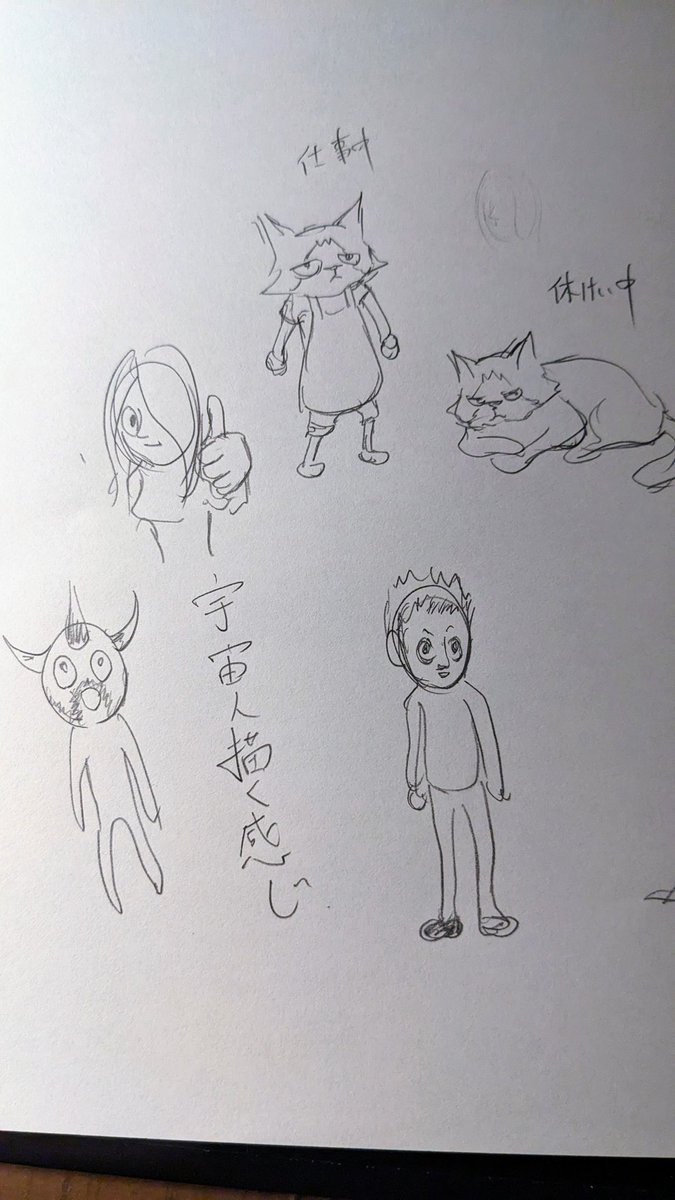 仕事中
休けい中
宇宙人描く感じ